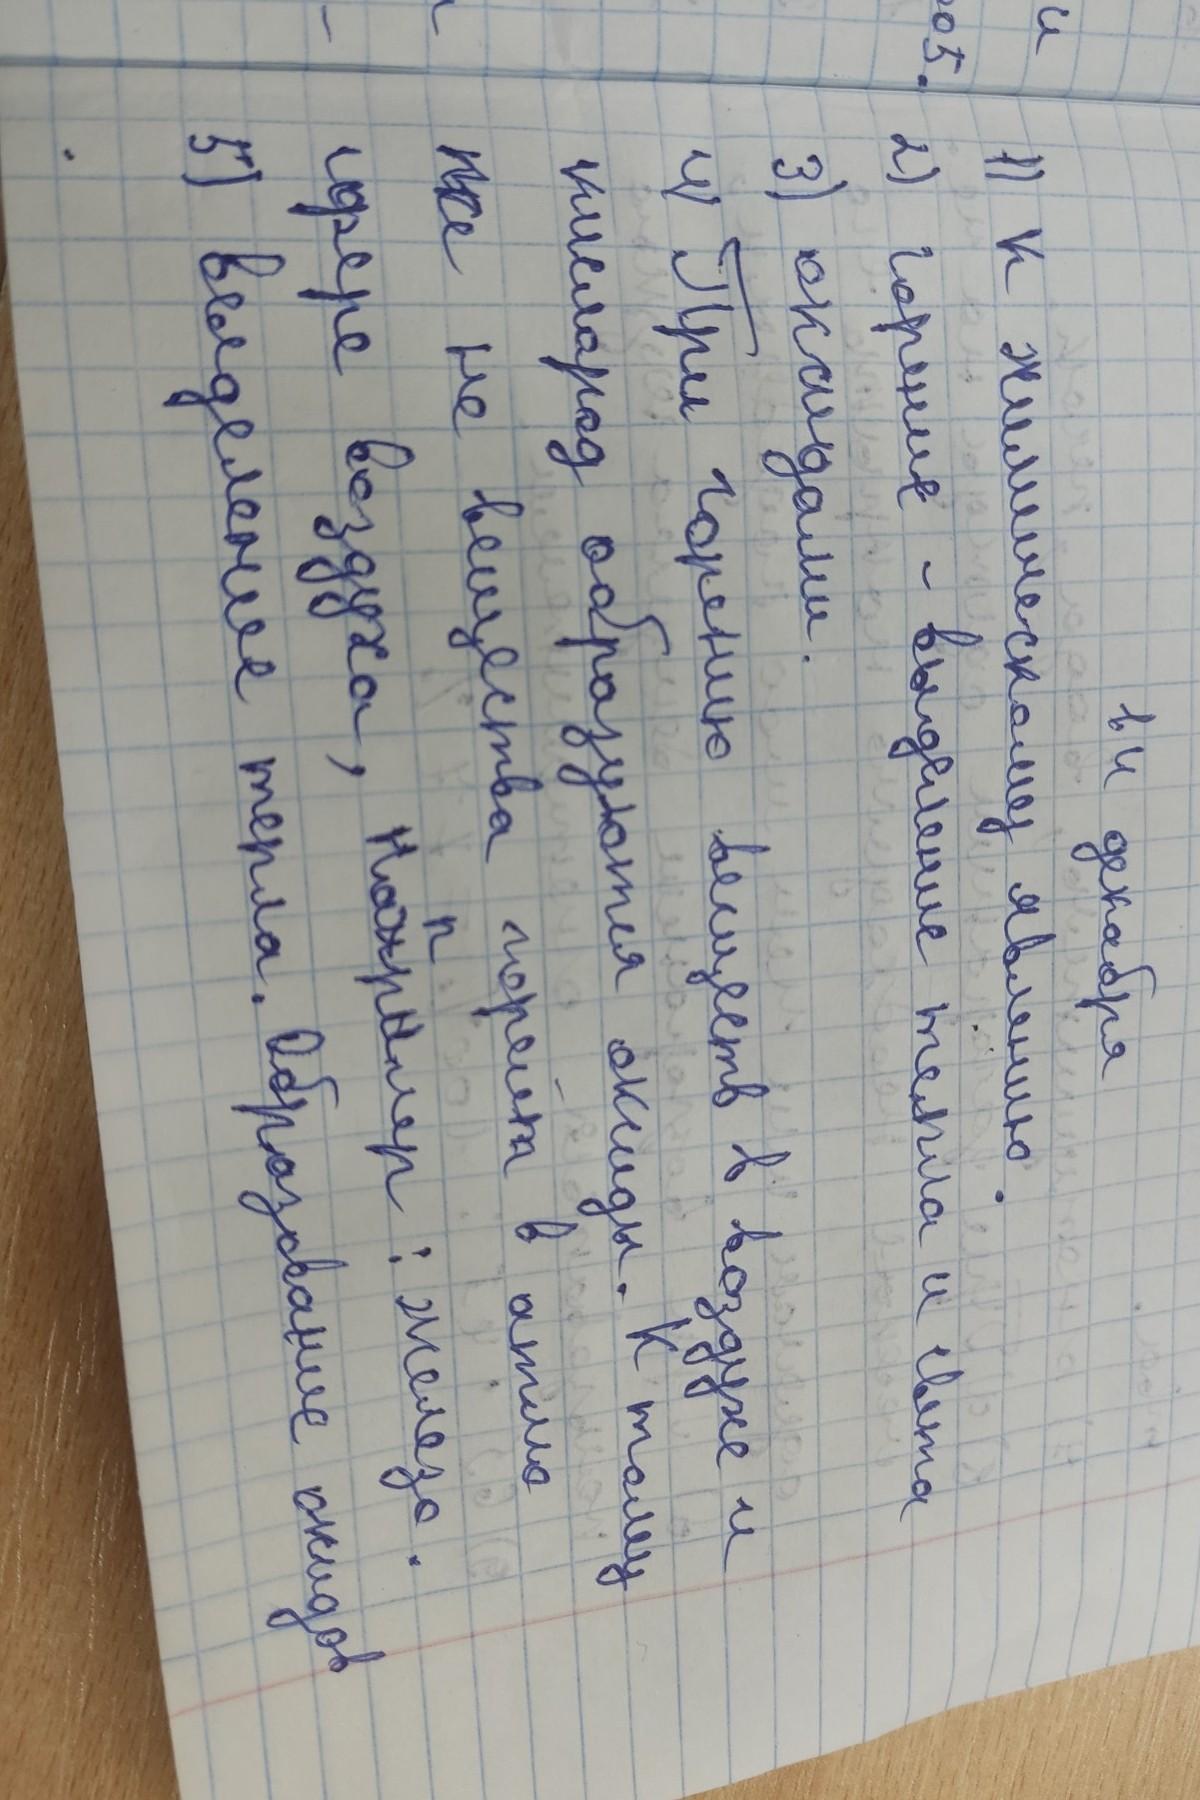 24 декабря
1) К химическому явлению.
2) горение - выделение тепла и света
3) оксидами.
4) При горению веществ в воздухе и
кислород образуются оксиды. К тому
же не вещества горейт в атмо
сфере воздуха, например: железо.
5) выделение терла. Образование оксидов